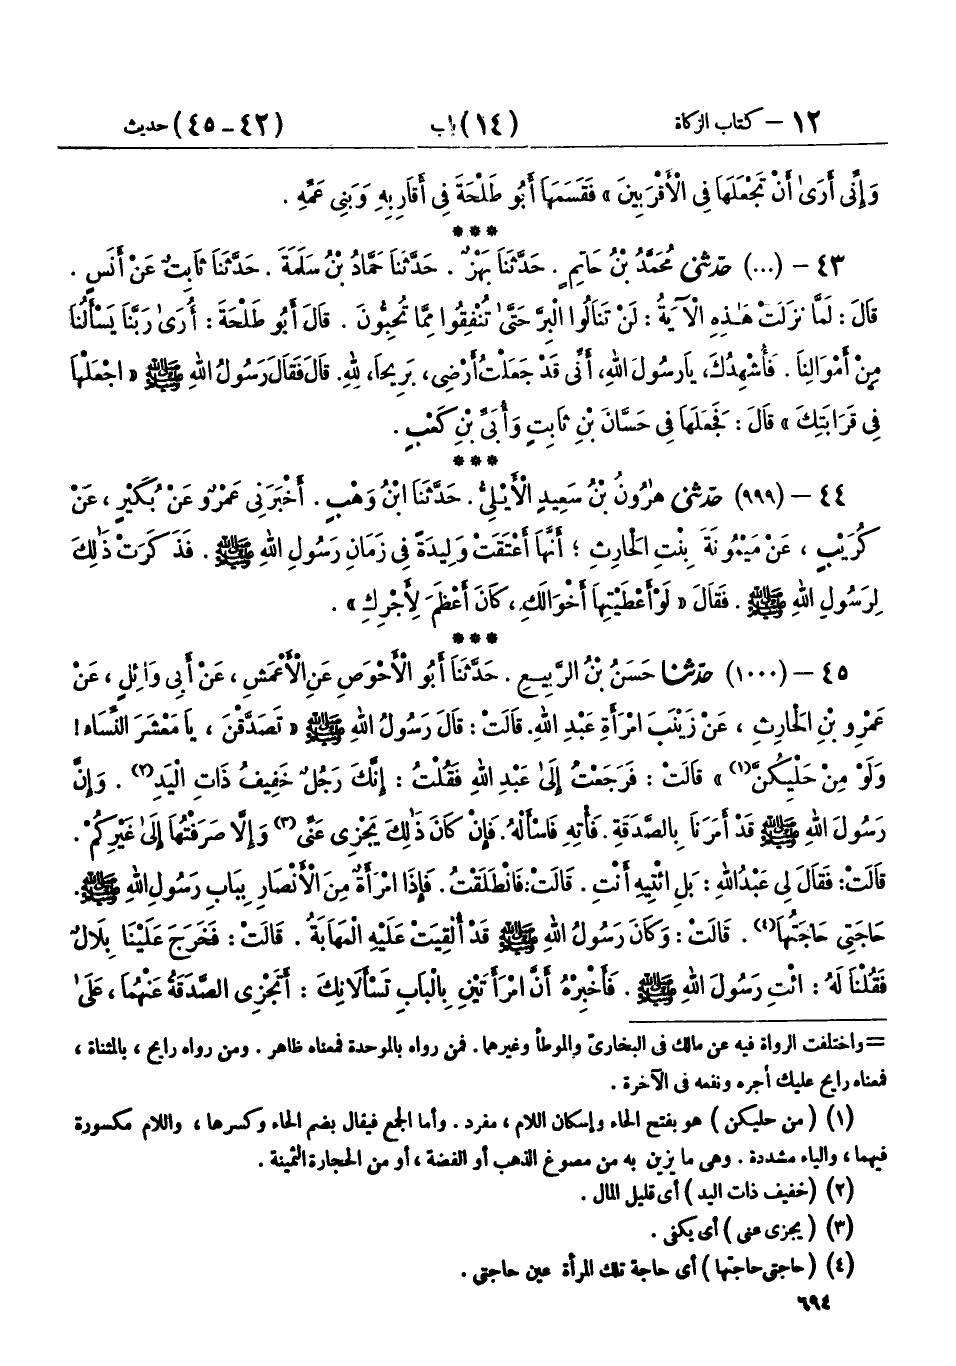 ١٢ – كتاب الزكاة (١٤) باب (٤٢ – ٤٥) حديث
وَإِنِّى أَرَىٰ أَنْ تَجْعَلَهَا فِى الْأَقْرَبِينَ » فَقَسَمَهَا أَبُو طَلْحَةَ فِى أَقَارِبِهِ وَبَنِى عَمِّهِ .
***
٤٣ – (...) حَدَّثَنِى مُحَمَّدُ بْنُ حَاتِمٍ . حَدَّثَنَا بَهْزٌ . حَدَّثَنَا حَمَّادُ بْنُ سَلَمَةَ . حَدَّثَنَا ثَابِتٌ عَنْ أَنَسٍ .
قَالَ : لَمَّا نَزَلَتْ هَـٰذِهِ الْآيَةُ : لَنْ تَنَالُوا الْبِرَّ حَتَّىٰ تُنْفِقُوا مِمَّا تُحِبُّونَ . قَالَ أَبُو طَلْحَةَ : أُرَىٰ رَبَّنَا يَسْأَلُنَا
مِنْ أَمْوَالِنَا . فَأُشْهِدُكَ، يَا رَسُولَ اللهِ، أَنِّى قَدْ جَعَلْتُ أَرْضِى، بَرِيحَا، لِلهِ. قَالَ فَقَالَ رَسُولُ اللهِ ﷺ « اجْعَلْهَا
فِى قَرَابَتِكَ » قَالَ : فَجَعَلَهَا فِى حَسَّانَ بْنِ ثَابِتٍ وَأُبَىِّ بْنِ كَعْبٍ .
***
٤٤ – (٩٩٩) حَدَّثَنِى هٰرُونُ بْنُ سَعِيدٍ الْأَيْلِىُّ . حَدَّثَنَا ابْنُ وَهْبٍ . أَخْبَرَنِى عَمْرٌو عَنْ بُكَيْرٍ ، عَنْ
كُرَيْبٍ ، عَنْ مَيْمُونَةَ بِنْتِ الْحَارِثِ ؛ أَنَّهَا أَعْتَقَتْ وَلِيدَةً فِى زَمَانِ رَسُولِ اللهِ ﷺ . فَذَكَرَتْ ذَٰلِكَ
لِرَسُولِ اللهِ ﷺ . فَقَالَ « لَوْ أَعْطَيْتِهَا أَخْوَالَكِ، كَانَ أَعْظَمَ لِأَجْرِكِ » .
***
٤٥ – (١٠٠٠) حَدَّثَنَا حَسَنُ بْنُ الرَّبِيعِ . حَدَّثَنَا أَبُو الْأَحْوَصِ عَنِ الْأَعْمَشِ ، عَنْ أَبِى وَائِلٍ ، عَنْ
عَمْرِو بْنِ الْحَارِثِ ، عَنْ زَيْنَبَ امْرَأَةِ عَبْدِ اللهِ. قَالَتْ : قَالَ رَسُولُ اللهِ ﷺ « تَصَدَّقْنَ ، يَا مَعْشَرَ النِّسَاءِ !
وَلَوْ مِنْ حَلْيِكُنَّ(١) » قَالَتْ : فَرَجَعْتُ إِلَىٰ عَبْدِ اللهِ فَقُلْتُ : إِنَّكَ رَجُلٌ خَفِيفُ ذَاتِ الْيَدِ(٢) . وَإِنَّ
رَسُولَ اللهِ ﷺ قَدْ أَمَرَنَا بِالصَّدَقَةِ . فَأْتِهِ فَاسْأَلْهُ. فَإِنْ كَانَ ذَٰلِكَ يَجْزِى عَنِّى(٣) وَإِلَّا صَرَفْتُهَا إِلَىٰ غَيْرِكُمْ .
قَالَتْ: فَقَالَ لِى عَبْدُ اللهِ : بَلِ ائْتِيهِ أَنْتِ . قَالَتْ: فَانْطَلَقْتُ . فَإِذَا امْرَأَةٌ مِنَ الْأَنْصَارِ بِبَابِ رَسُولِ اللهِ ﷺ.
حَاجَتِى حَاجَتُهَا(٤) . قَالَتْ : وَكَانَ رَسُولُ اللهِ ﷺ قَدْ أُلْقِيَتْ عَلَيْهِ الْمَهَابَةُ . قَالَتْ : فَخَرَجَ عَلَيْنَا بِلَالٌ
فَقُلْنَا لَهُ : ائْتِ رَسُولَ اللهِ ﷺ . فَأَخْبِرْهُ أَنَّ امْرَأَتَيْنِ بِالْبَابِ تَسْأَلَانِكَ : أَتَجْزِى الصَّدَقَةُ عَنْهُمَا ، عَلَىٰ
= واختلفت الرواة فيه عن مالك فى البخارىّ والموطأ وغيرهما . فمن رواه بالموحدة فمعناه ظاهر . ومن رواه رايح ، بالمثناة ،
فمعناه رايح عليك أجره ونفعه فى الآخرة .
(١) ( من حليكن ) هو بفتح الحاء وإسكان اللام ، مفرد . وأما الجمع فيقال بضم الحاء وكسرها ، واللام مكسورة
فيهما ، والياء مشددة . وهى ما يزين به من مصوغ الذهب أو الفضة ، أو من الحجارة الثمينة .
(٢) ( خفيف ذات اليد ) أى قليل المال .
(٣) ( يجزى عنى ) أى يكفى .
(٤) ( حاجتى حاجتها ) أى حاجة تلك المرأة عين حاجتى .
٦٩٤